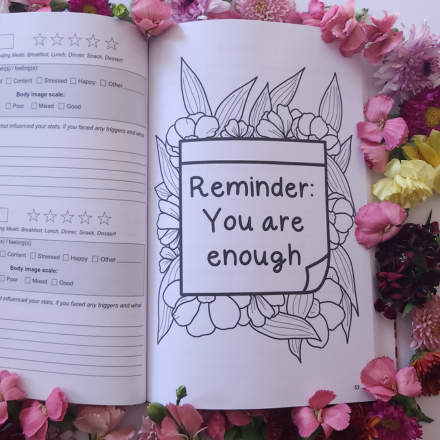 ating Meals: Breakfast, Lunch, Dinner, Snack, Dessert
n(s) / feeling(s):
Content Stressed Happy Other
Body image scale:
Poor Mixed Good
hat influenced your stats, if you faced any triggers and what
ng Meals: Breakfast, Lunch, Dinner, Snack, Dessert
s) / feeling(s):
Content Stressed Happy Other
Body image scale:
Poor Mixed Good
influenced your stats, if you faced any triggers and what
Reminder:
You are
enough
53